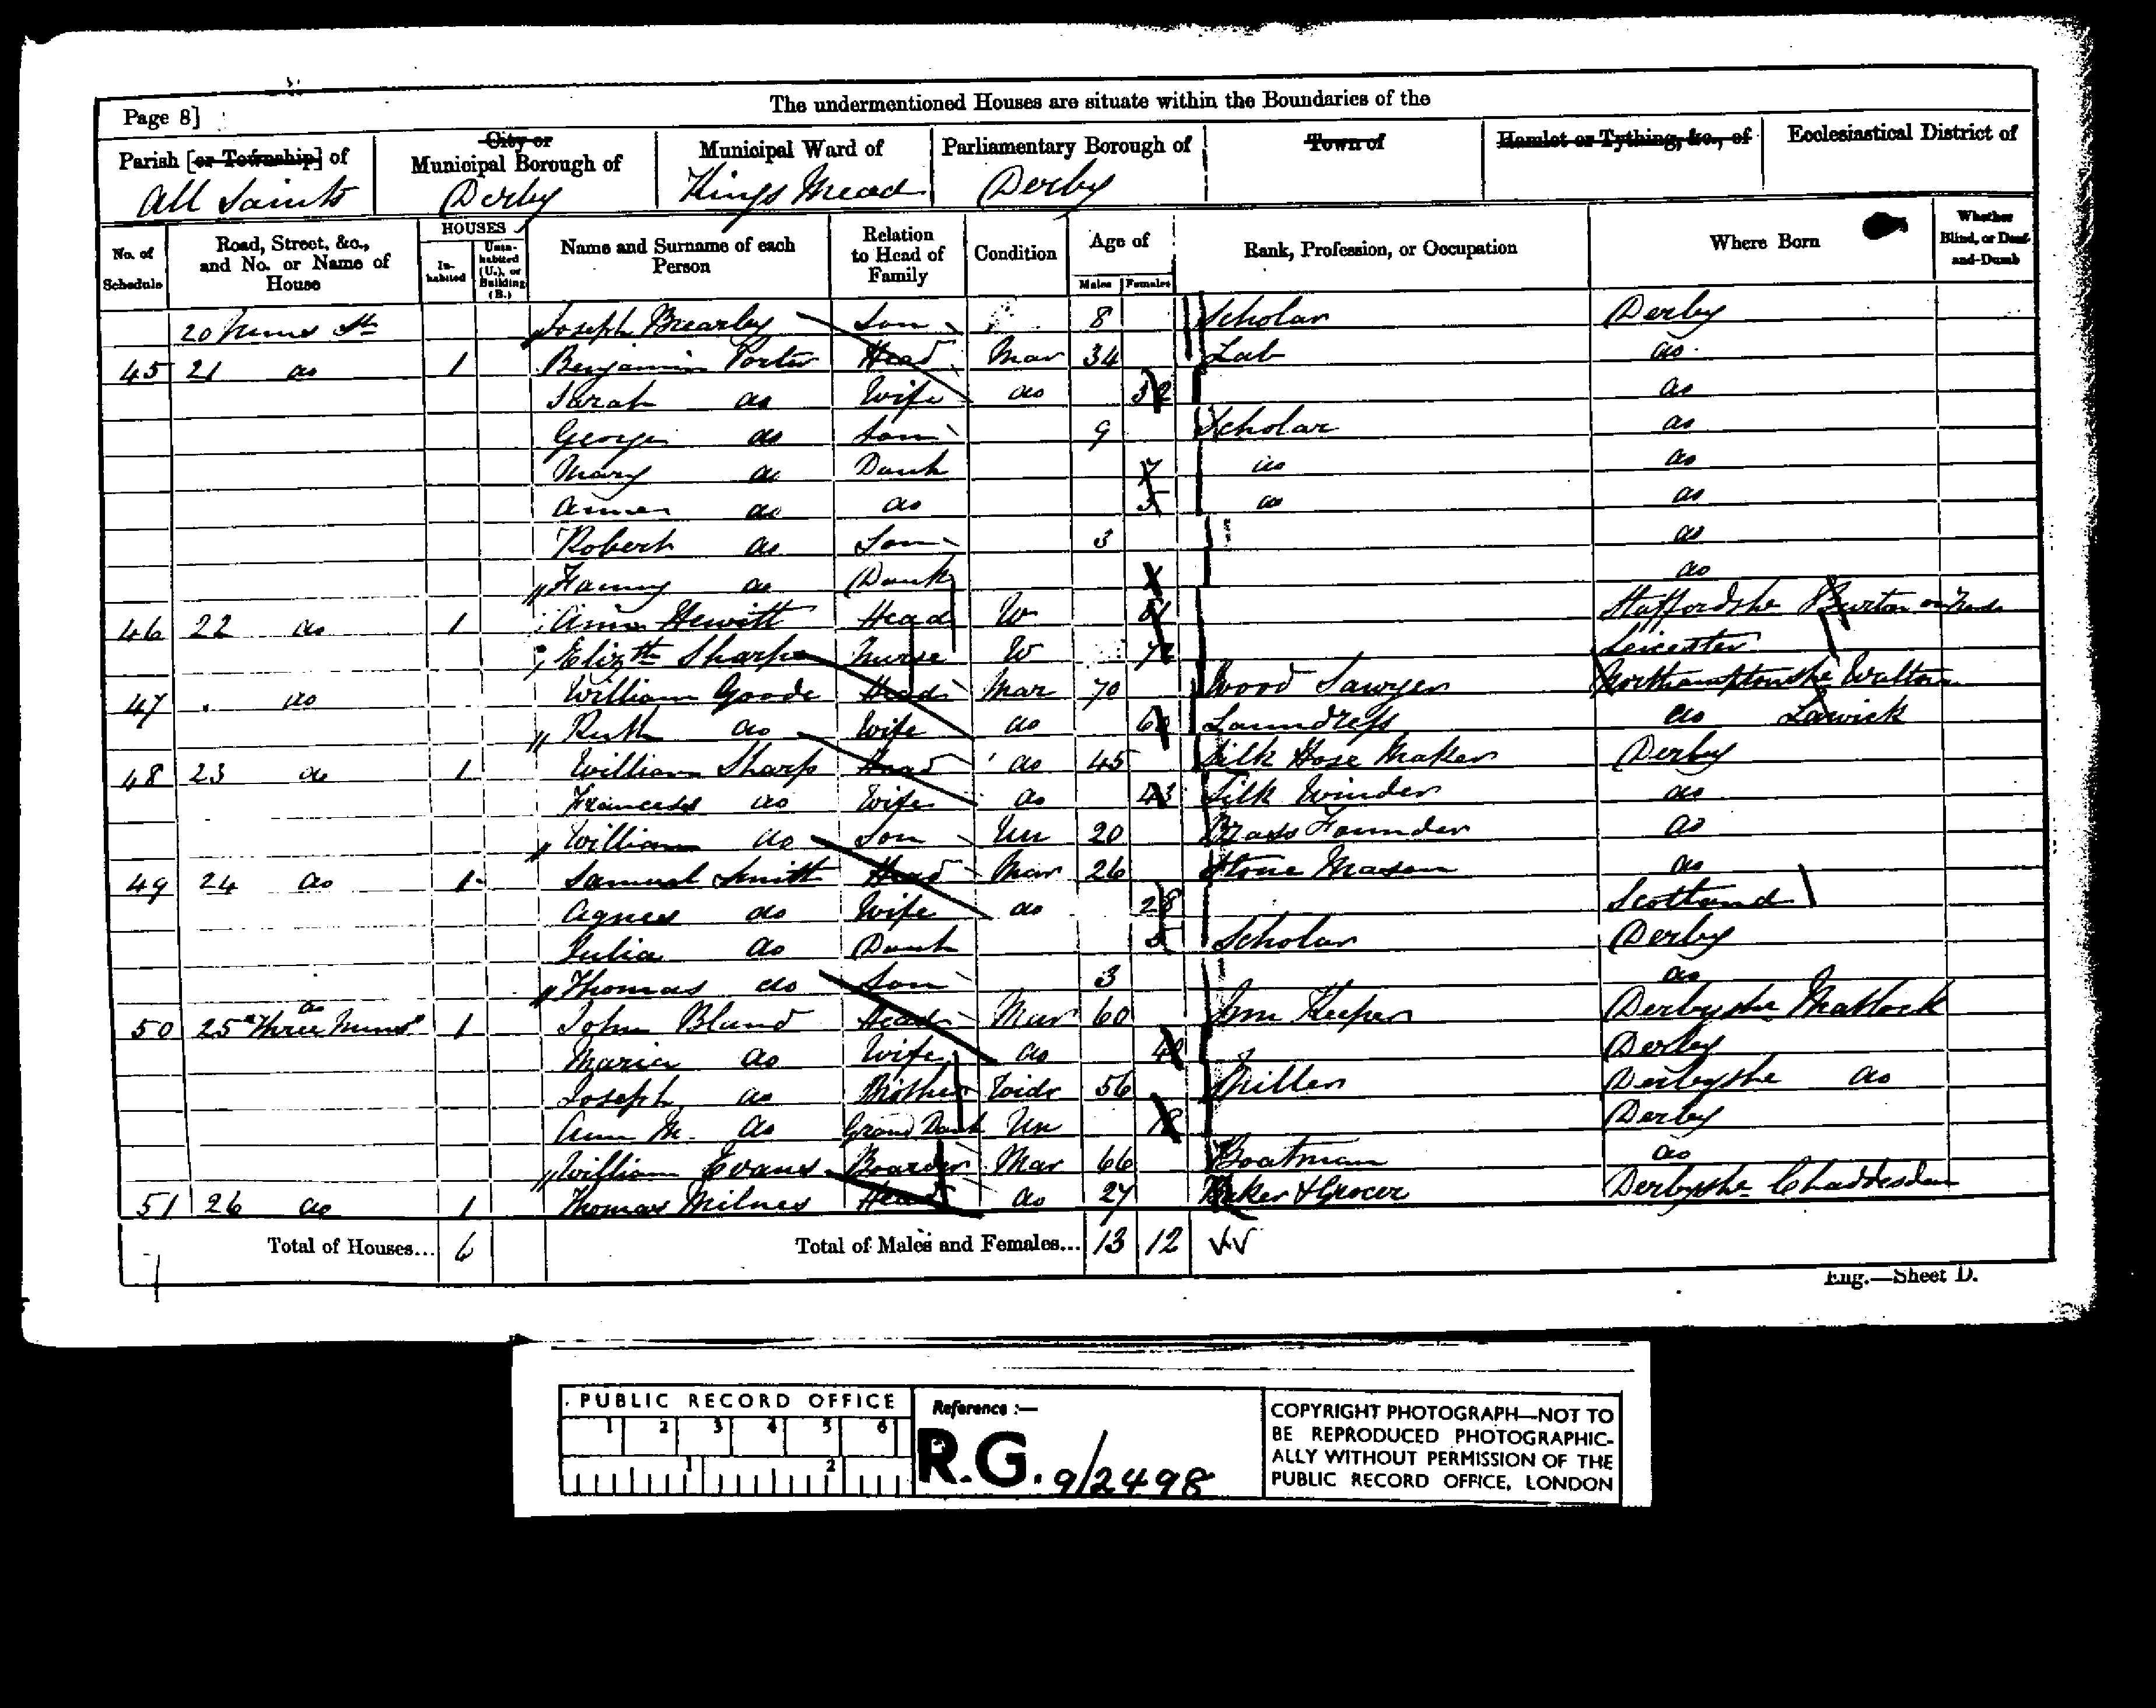 Page 8]
The undermentioned Houses are situate within the Boundaries of the
Parish [or Township] of
All Saints
City or
Municipal Borough of
Derby
Municipal Ward of
Kings Mead
Parliamentary Borough of
Derby
Town of
Hamlet or Tything, &c., of
Ecclesiastical District of
No. of Schedule
Road, Street, &c., and No. or Name of House
HOUSES
In-habited
Unin-habited (U.), or Building (B.)
Name and Surname of each Person
Relation to Head of Family
Condition
Age of
Males
Females
Rank, Profession, or Occupation
Where Born
Whether Blind, or Deaf-and-Dumb
20 Nuns St Joseph Brearley Son 8 Scholar Derby
45 21 do 1 Benjamin Porter Head Mar 34 Lab do
Sarah do Wife do 32 do
George do Son 9 Scholar do
Mary do Daur 7 do do
do do 5 do do
Robert do Son 3 do
Fanny do Daur do
46 22 do 1 Ann Hewitt Head W Staffordshe Burton on
Elizth Sharpe Nurse W Leicester
47 do William Goode Head Mar 70 Wood Sawyer Northamptonshe
Ruth do Wife do Laundress do
48 23 do 1 William Sharp Head do 45 Silk Hose Maker Derby
Frances do Wife do 43 Silk Winder do
William do Son Un 20 Brass Founder do
49 24 do 1 Samuel Smith Head Mar 26 Stone Mason do
Agnes do Wife do 28 Scotland
Julia do Daur 5 Scholar Derby
Thomas do Son 3 do
50 25 do "Three Nuns" 1 John Bland Head Mar 60 Inn Keeper Derbyshe Matlock
Maria do Wife do Derby
Joseph do Brother Widr 56 Miller Derbyshe do
Ann M. do Grand Daur Un 18 Derby
William Evans Boarder Mar 66 Boatman do
51 26 do 1 Thomas Milnes Head do 27 Baker & Grocer Derbyshe Chaddesden
Total of Houses... 6
Total of Males and Females... 13 12
Eng.—Sheet D.
PUBLIC RECORD OFFICE
1 2 3 4 5 6
1 2
Reference :—
R.G. 9/2498
COPYRIGHT PHOTOGRAPH—NOT TO
BE REPRODUCED PHOTOGRAPHIC-
ALLY WITHOUT PERMISSION OF THE
PUBLIC RECORD OFFICE, LONDON